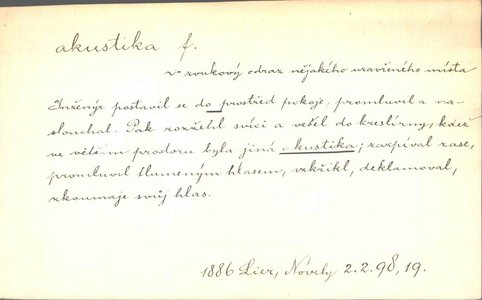 akustika f.
zvukový odraz nějakého uzavřeného místa
Inženýr postavil se do prostřed pokoje, promluvil a na-
slouchal. Pak rozžehl svíci a vešel do kreslírny, kdež
ve větším prostoru byla jiná akustika; zazpíval zase,
promluvil tlumeným hlasem, vzkřikl, deklamoval,
zkoumaje svůj hlas.
1886 Lier, Novely 2.2.98, 19.